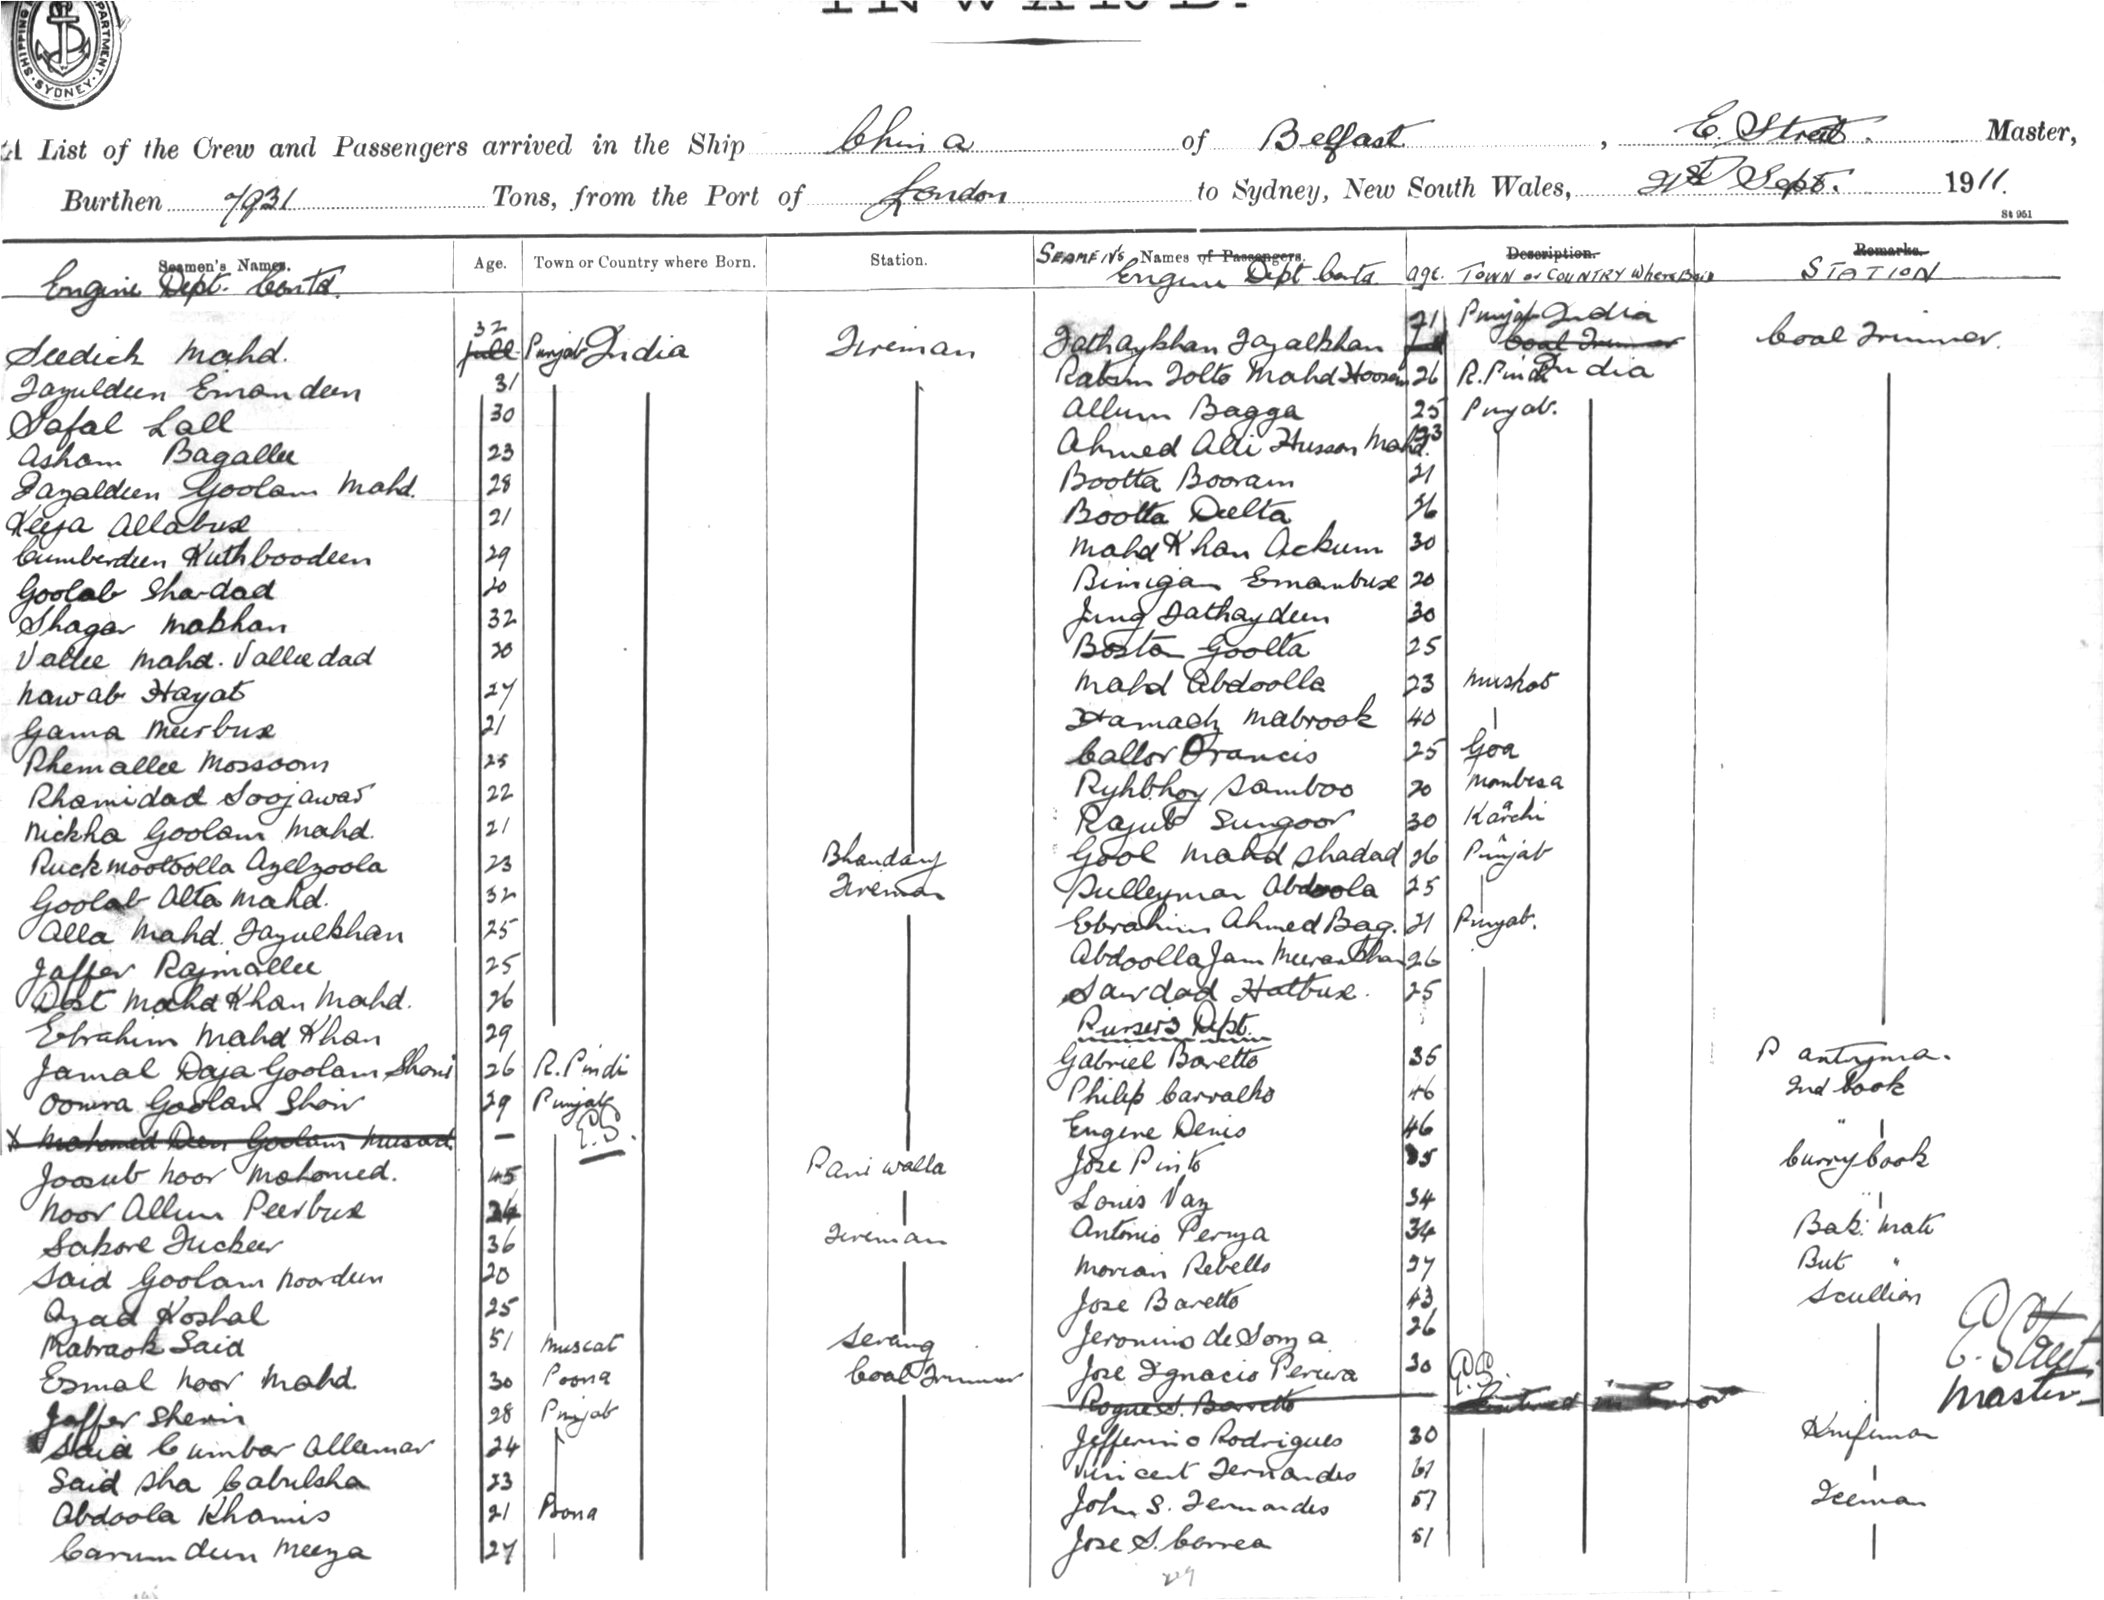 SHIPPING DEPARTMENT. SYDNEY
INWARD.
A List of the Crew and Passengers arrived in the Ship China of Belfast, E. Street. Master,
Burthen 7931 Tons, from the Port of London to Sydney, New South Wales, 21st Sept. 1911.
St 951
Seamen's Names. Age. Town or Country where Born. Station.
Engine Dept. Contd.
Seedick Mahd. 32 Punjab India Fireman
Fazuldeen Emamdeen 31
Safal Lall 30
Asham Bagallee 23
Fazaldeen Goolam Mahd. 28
Keeja Allabux 21
Cumberdeen Kuthboodeen 29
Goolab Shardad 20
Shagar Makhan 32
Vallee Mahd. Valleedad 20
Nawab Hayat 27
Gama Meerbux 21
Rhemallee Mossoom 25
Rhamidad Soojawas 22
Nickha Goolam Mahd. 21
Ruckmootoolla Azelzoola 23 Bhandary
Goolab Alta Mahd. 32 Fireman
Alla Mahd. Fazulkhan 25
Jaffer Rajmallee 25
Dost Mahd Khan Mahd. 26
Ebrahim Mahd Khan 29
Jamal Daja Goolam Shani 26 R. Pindi
Oomra Goolam Shoir 29 Punjab
x Mahomed Deen Goolam Musad — E.S.
Joosub Noor Mahomed. 45 Pani walla
Noor Allum Peerbux
Sakore Fuckeer 36 Fireman
Said Goolam Noordeen 20
Azad Koshal 25
Mabrook Said 51 Muscat Serang
Esmal Noor Mahd 30 Poona Coal Trimmer
Jaffer Sherin 28 Punjab
Said Cumbar Alleemar 24
Said Sha Cabulsha 23
Abdoola Khamis 21 Poona
Carumdeen Meeza 27
SEAMEN'S Names of Passengers. Age. Description. TOWN or COUNTRY Where Born Remarks. STATION
Engine Dept Contd.
Fathaykhan Fazalkhan 21 Punjab India Coal Trimmer Coal Trimmer.
Rabim Tolto Mahd Hoosain 26 R. Pindi India
Allum Bagga 25 Punjab.
Ahmed Alli Hussan Mahd. 23
Bootta Booram 21
Bootta Dulta 26
Mahd Khan Ackum 30
Binigan Emambux 20
Jung Fathaydeen 30
Bostan Goolta 25
Mahd Abdoolla 23 Mushat
Hamach Mabrook 40
Callor Francis 25 Goa
Ryhbhoy Samboo 20 Mombasa
Rajub Sungoor 30 Karchi
Gool Mahd Shadad 26 Punjab
Sulleyman Abdoola 25
Ebrahim Ahmed Bag. 21 Punjab.
Abdoolla Jam Meeran Khan 26
Sardad Hatbux. 25
Purser's Dept.
Gabriel Baretto 35 Pantryma.
Philip Carvalho 46 2nd Cook
Eugene Denis 46 "
Jose Pinto 35 Curry Cook
Louis Vaz 34 "
Antonio Pereya 34 Bak: Mate
Morian Rebello 27 But "
Jose Baretto 43 Scullion
Jeronimo de Souza 26
Jose Ignacio Periera 30
Roque S. Barretto Entered in Error
E. Street
Master
Jefferino Rodrigues 30 Knifeman
Vincent Fernandes 61
John S. Fernandes 57 Iceman
Jose S. Correa 51
229